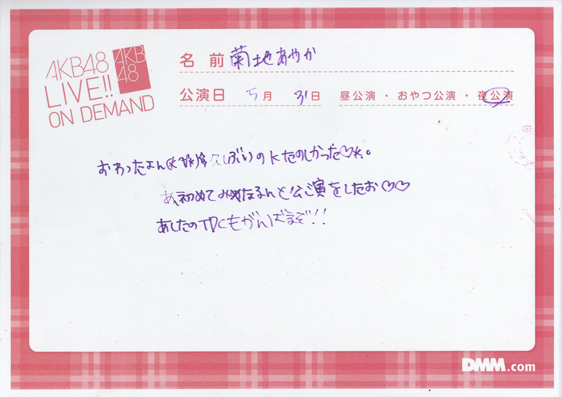 AKB48
LIVE!!
ON DEMAND
AKB
48
名前 菊地あやか
公演日 5月 31日 昼公演・おやつ公演・夜公演
おわったよん 久しぶりのKたのしかった♡
初めてみなるんと公演をしたお♡♡
あしたのTDCもがんばるぞ!!
DMM.com